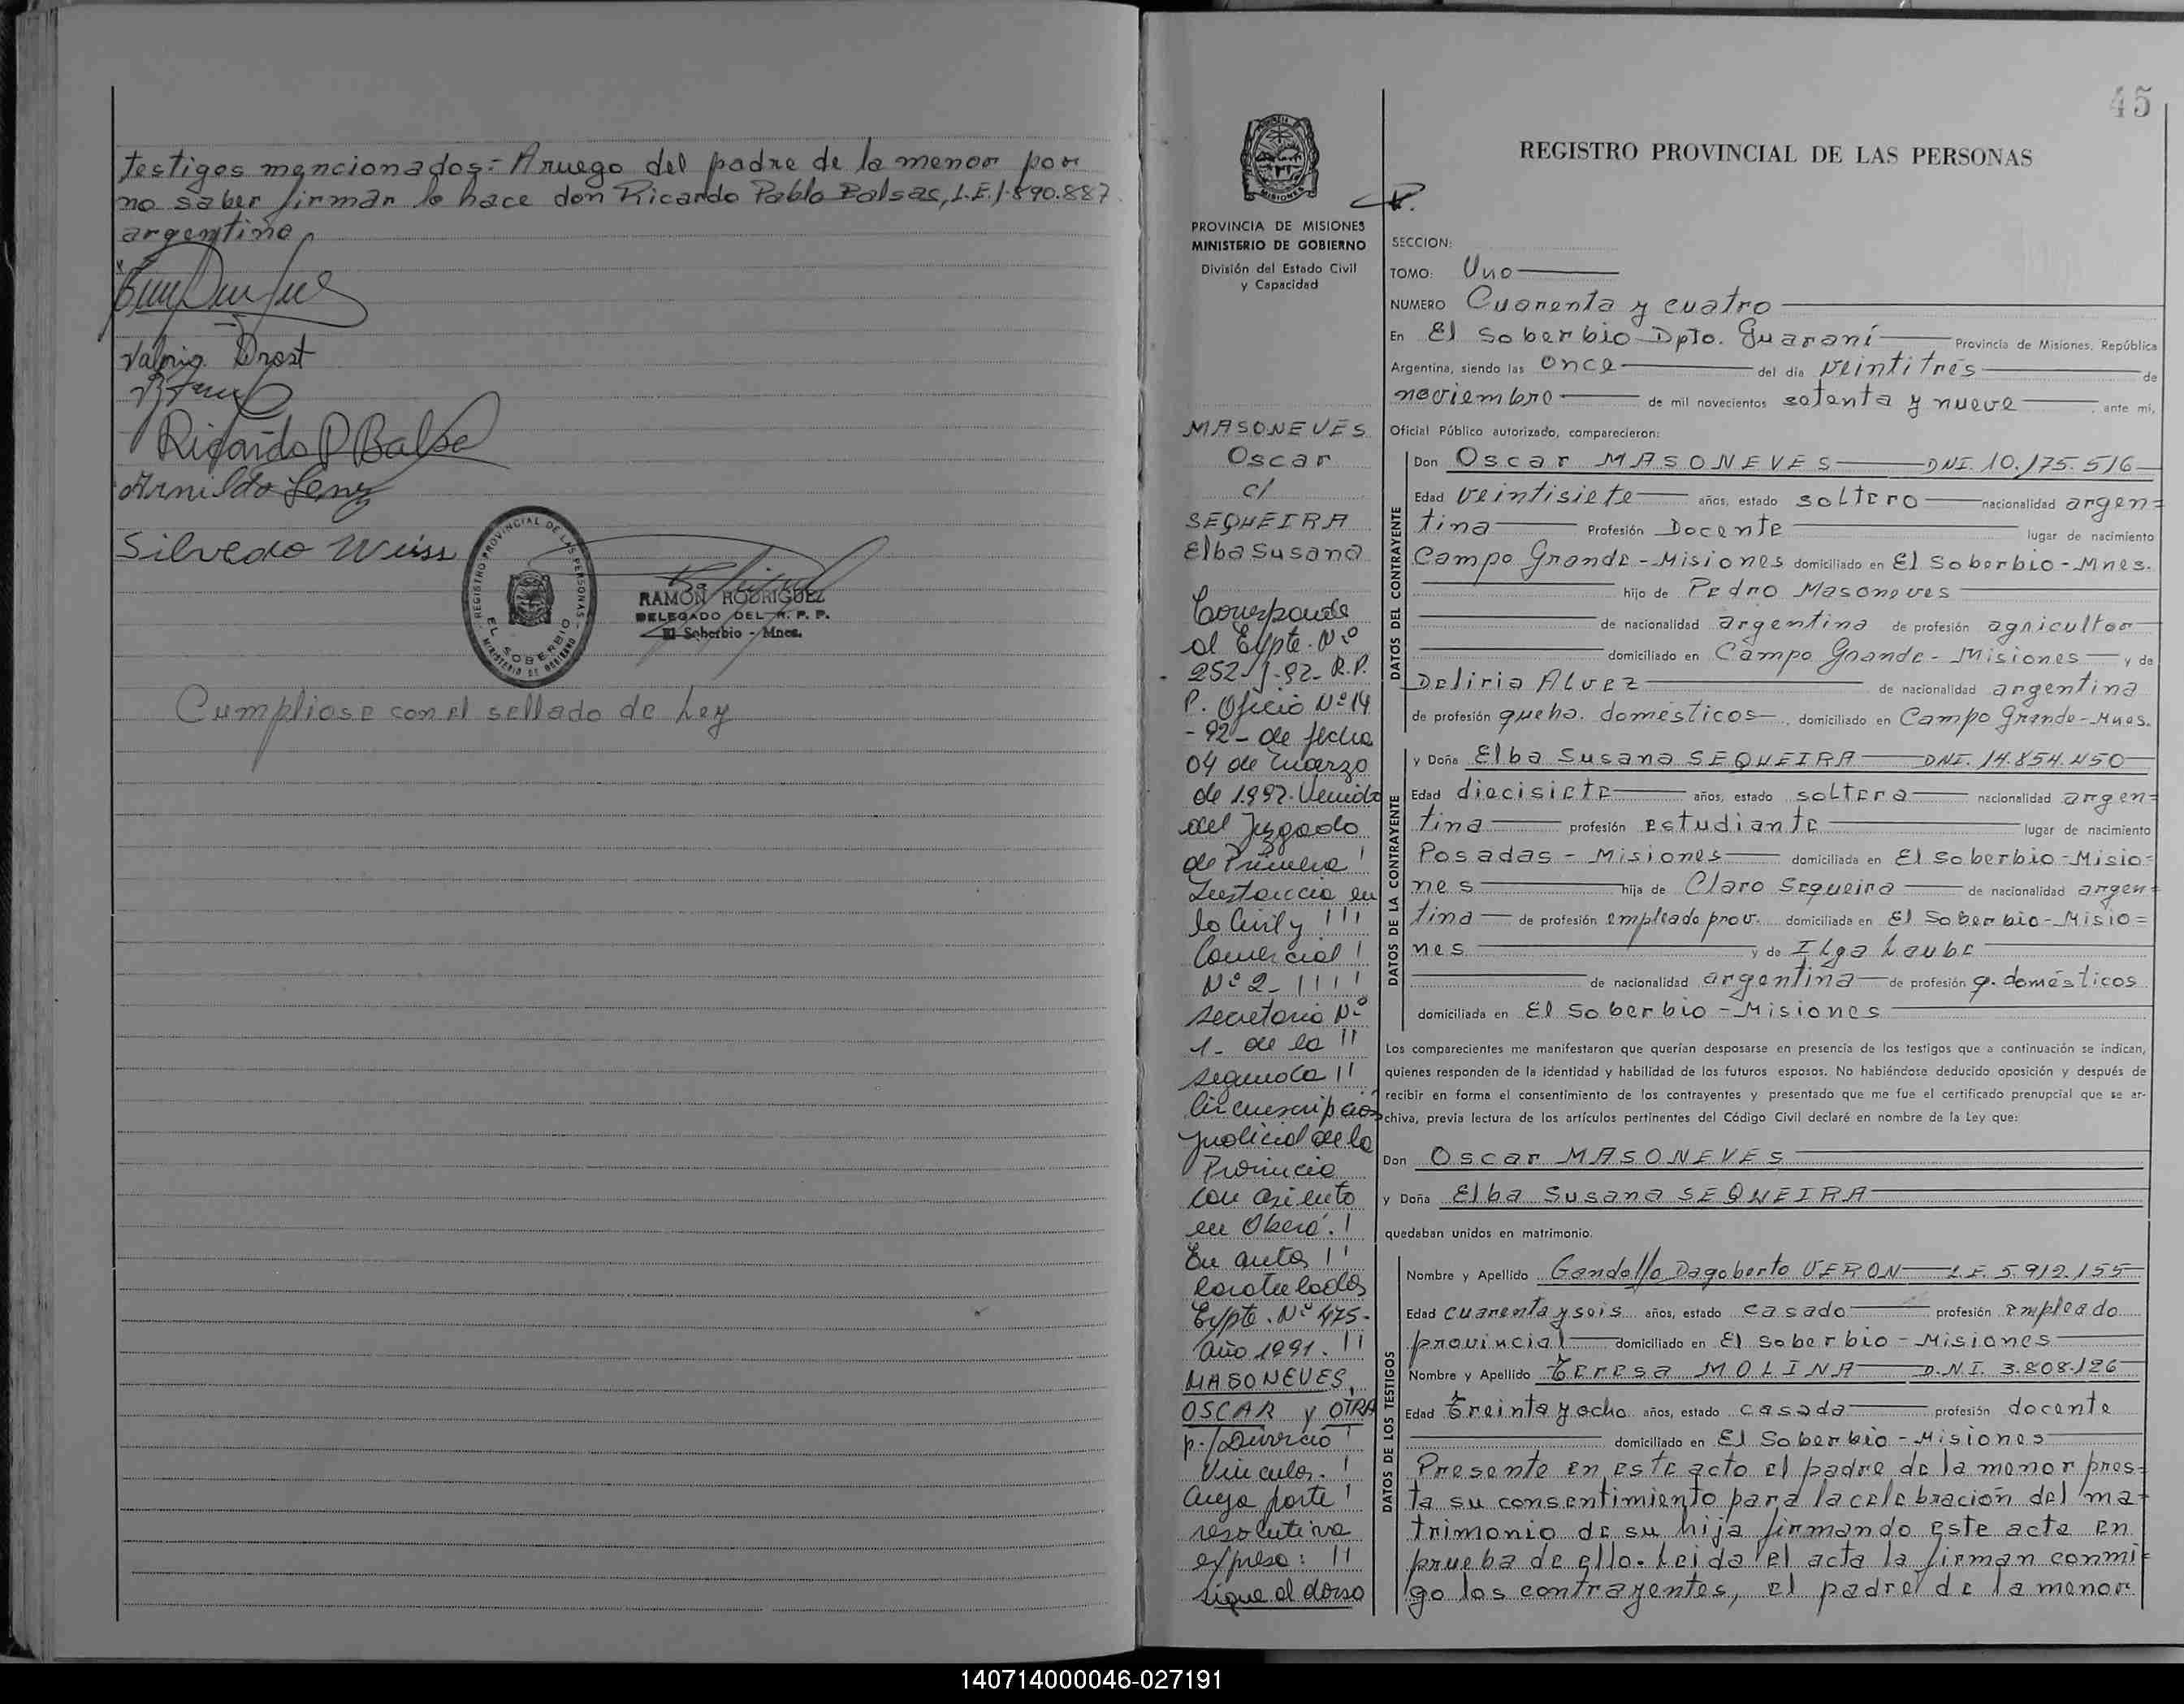 testigos mencionados.- A ruego del padre de la menor por
no saber firmar lo hace don Ricardo Pablo Balsas, L.E. 1.890.887
argentino
Valmig Drost
Ricardo P Balse
Arnildo Lenz
Silvedo Weiss
REGISTRO PROVINCIAL DE LAS PERSONAS
EL SOBERBIO
MINISTERIO DE GOBIERNO
RAMÓN RODRIGUEZ
DELEGADO DEL R. P. P.
El Soberbio - Mnes.
Cumpliose con el sellado de Ley
45
MISIONES
PROVINCIA DE MISIONES
MINISTERIO DE GOBIERNO
División del Estado Civil
y Capacidad
MASONEVES
Oscar
c/
SEQUEIRA
Elba Susana
Corresponde
al Expte. Nº
252-J-92- R.P.
P. Oficio Nº 14
- 92 - de fecha
04 de Marzo
de 1.992. Venido
del Juzgado
de Primera
Instancia en
lo Civil y
Comercial
Nº 2 -
secretaria Nº
1- de la
segunda
Circunscripción
judicial de la
Provincia
con asiento
en Oberá.
En autos
caratulados
Expte. Nº 475-
año 1991.
MASONEVES,
OSCAR y OTRA
p./Divorcio
Vincular.
Cuya parte
resolutiva
expresa:
sigue al dorso
REGISTRO PROVINCIAL DE LAS PERSONAS
SECCION:
TOMO: Uno
NUMERO Cuarenta y cuatro
En El Soberbio Dpto. Guaraní Provincia de Misiones, República
Argentina, siendo las once del día veintitrés de
noviembre de mil novecientos setenta y nueve, ante mí,
Oficial Público autorizado, comparecieron:
DATOS DEL CONTRAYENTE
Don Oscar MASONEVES DNI. 10.175.516
Edad veintisiete años, estado soltero nacionalidad argen=
tina Profesión Docente lugar de nacimiento
Campo Grande - Misiones domiciliado en El Soberbio - Mnes.
hijo de Pedro Masoneves
de nacionalidad argentina de profesión agricultor
domiciliado en Campo Grande - Misiones y de
Deliria Alvez de nacionalidad argentina
de profesión queha. domésticos, domiciliado en Campo Grande - Mnes.
DATOS DE LA CONTRAYENTE
y Doña Elba Susana SEQUEIRA DNI. 14.854.450
Edad diecisiete años, estado soltera nacionalidad argen=
tina profesión estudiante lugar de nacimiento
Posadas - Misiones domiciliada en El Soberbio - Misio=
nes hija de Claro Sequeira de nacionalidad argen=
tina de profesión empleado prov. domiciliada en El Soberbio - Misio=
nes y de Ilga Laube
de nacionalidad argentina de profesión q. domésticos
domiciliada en El Soberbio - Misiones
Los comparecientes me manifestaron que querían desposarse en presencia de los testigos que a continuación se indican,
quienes responden de la identidad y habilidad de los futuros esposos. No habiéndose deducido oposición y después de
recibir en forma el consentimiento de los contrayentes y presentado que me fue el certificado prenupcial que se ar-
chiva, previa lectura de los artículos pertinentes del Código Civil declaré en nombre de la Ley que:
Don Oscar MASONEVES
y Doña Elba Susana SEQUEIRA
quedaban unidos en matrimonio.
DATOS DE LOS TESTIGOS
Nombre y Apellido Gandolfo Dagoberto VERON L.E. 5.912.155
Edad cuarenta y seis años, estado casado profesión empleado
provincial domiciliado en El Soberbio - Misiones
Nombre y Apellido Teresa MOLINA D.N.I. 3.808.126
Edad treinta y ocho años, estado casada profesión docente
domiciliado en El Soberbio - Misiones
Presente en este acto el padre de la menor pres=
ta su consentimiento para la celebración del ma=
trimonio de su hija firmando este acta en
prueba de ello. Leida el acta la firman conmi=
go los contrayentes, el padre de la menor
140714000046-027191